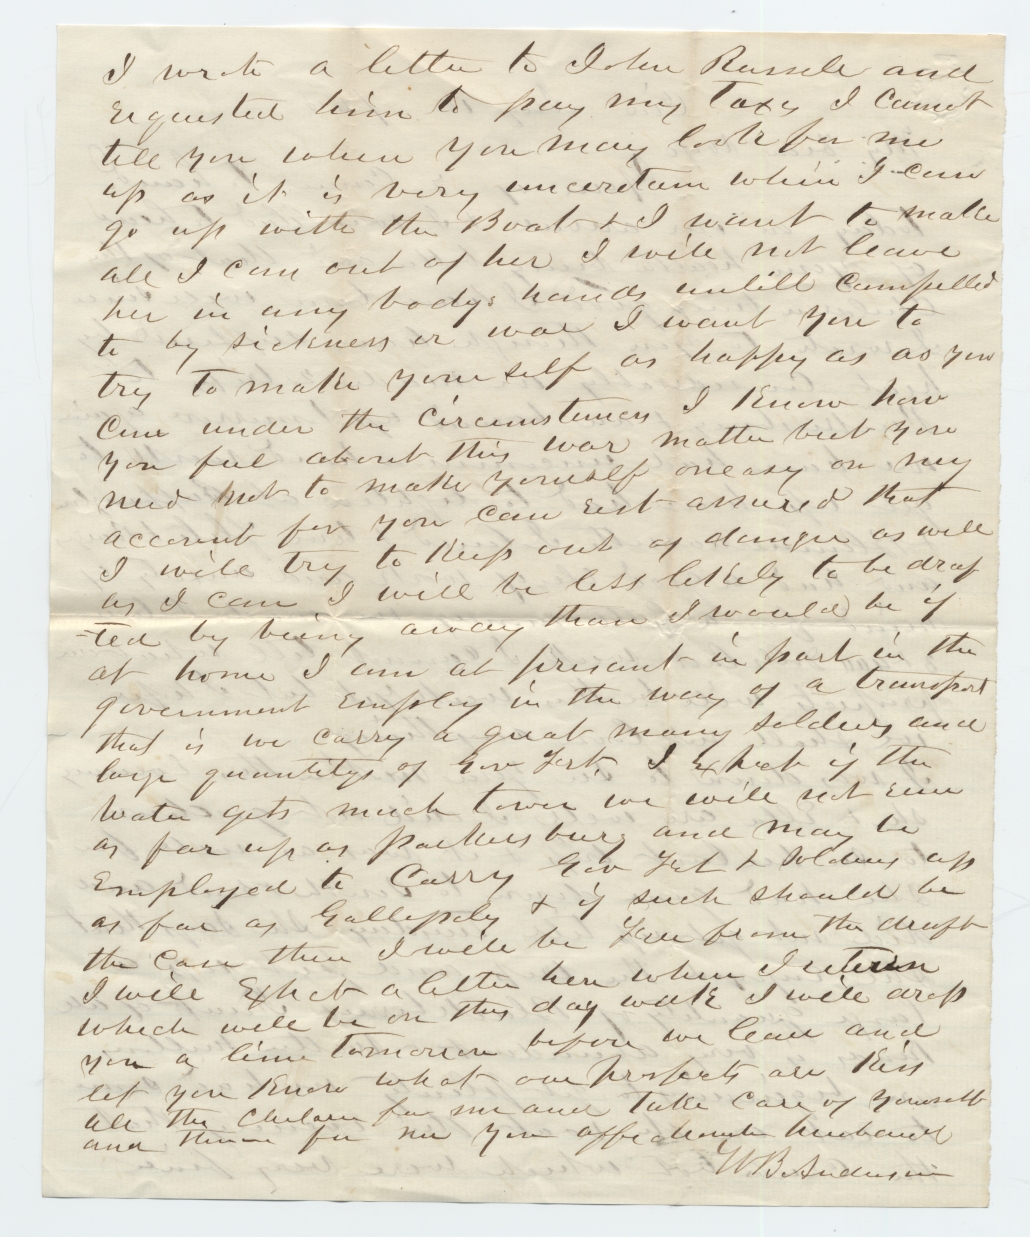 I wrote a letter to John Russell and
requested him to pay my Taxes I cannot
tell you when you may look for me
up as it is very uncertain when I can
go up with the Boat & I want to make
all I can out of her I will not leave
her in any bodys hands untill compelled
to by sickness or war I want you to
try to make yourself as happy as as you
can under the circumstances I Know how
you feel about this war matter but you
need not to make yourself oneasy on my
account for you can rest assured that
I will try to Keep out of danger as well
as I can I will be less likely to be draf
=ted by being away than I would be if
at home I am at presant in part in the
government Employ in the way of a transport
that is we carry a great many soldiers and
large quantitys of Gov Frt. I Expect if the
Water gets much lower we will not run
as far up as parkersburg and may be
Employed to Carry Gov Frt & soldiers up
as far as Gallipoly & if such should be
the Case then I will be free from the draft
I will Expect a letter here when I return
which will be on this day week I will drop
you a line tomorrow before we leave and
let you Know what our prospects are Kiss
all the Children for me and take care of yourself
and them for me your affectionate husband
W B Anderson